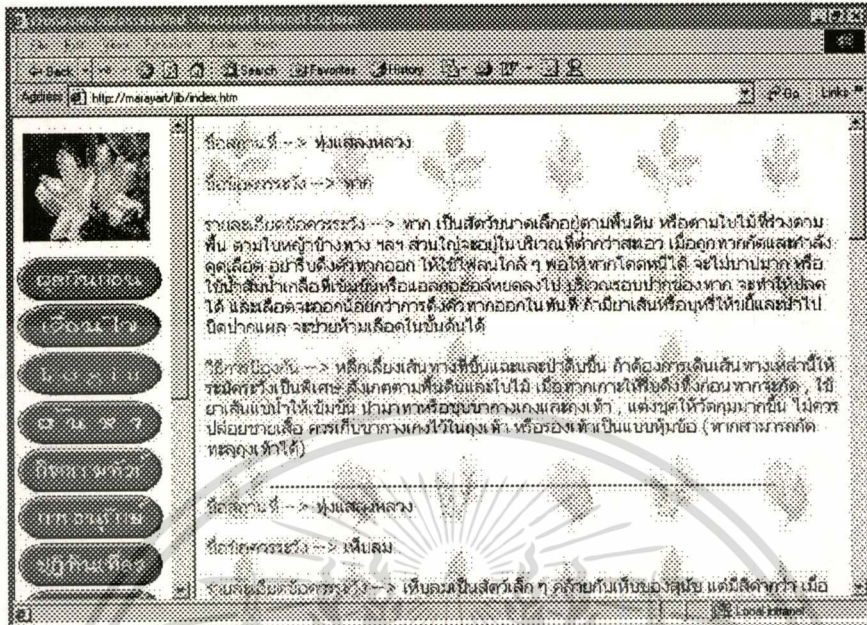 - Microsoft Internet Explorer
File Edit View Favorites Tools Help
Back Search Favorites History
Address http://marayart/jib/index.htm Go Links
ชื่อสถานที่ --> ทุ่งแสลงหลวง
ชื่อข้อควรระวัง --> ทาก
รายละเอียดข้อควรระวัง --> ทาก เป็นสัตว์ขนาดเล็กอยู่ตามพื้นดิน หรือตามใบไม้ที่ร่วงตาม
พื้น ตามใบหญ้าข้างทาง ฯลฯ ส่วนใหญ่จะอยู่ในบริเวณที่ต่ำกว่าสะเอว เมื่อถูกทากกัดและกำลัง
ดูดเลือด อย่ารีบดึงตัวทากออก ให้ใช้ไฟลนใกล้ ๆ พอให้ทากโดดหนีได้ จะไม่บาปมาก หรือ
ใช้น้ำส้มน้ำเกลือที่เข้มข้นหรือแอลกอฮอล์หยดลงไป บริเวณรอบปากของทาก จะทำให้ปลด
ได้ และเลือดจะออกน้อยกว่าการดึงตัวทากออกในทันที ถ้ามียาเส้นหรือบุหรี่ให้ขยี้และนำไป
ปิดปากแผล จะช่วยห้ามเลือดในขั้นต้นได้
วิธีการป้องกัน --> หลีกเลี่ยงเส้นทางที่ชื้นแฉะและป่าดิบชื้น ถ้าต้องการเดินเส้นทางเหล่านี้ให้
ระมัดระวังเป็นพิเศษ สังเกตตามพื้นดินและใบไม้ เมื่อทากเกาะให้รีบดึงทิ้งก่อนทากจะกัด , ใช้
ยาเส้นแช่น้ำให้เข้มข้น นำมาทาหรือชุบขากางเกงและถุงเท้า , แต่งชุดให้รัดกุมมากขึ้น ไม่ควร
ปล่อยชายเสื้อ ควรเก็บขากางเกงไว้ในถุงเท้า หรือรองเท้าเป็นแบบหุ้มข้อ (ทากสามารถกัด
ทะลุถุงเท้าได้)
ชื่อสถานที่ --> ทุ่งแสลงหลวง
ชื่อข้อควรระวัง --> เห็บลม
รายละเอียดข้อควรระวัง --> เห็บลมเป็นสัตว์เล็ก ๆ คล้ายกับเห็บของสุนัข แต่มีสีดำกว่า เมื่อ
Local intranet